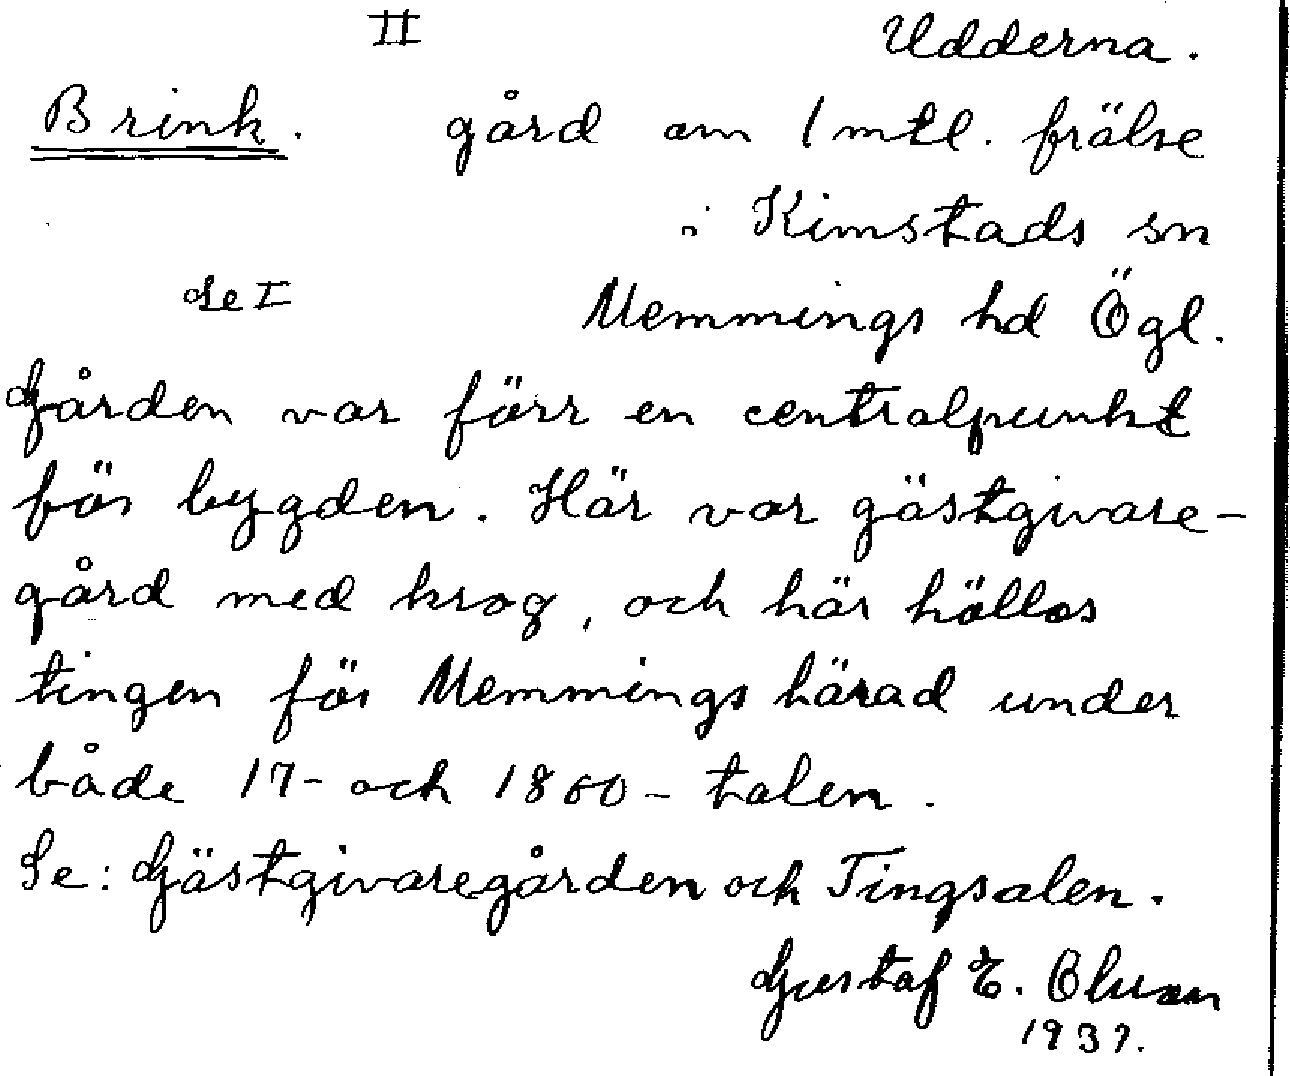 II Udderna.
Brink. gård om 1 mtl. frälse
i Kimstads sn
Se I Memmings hd Ögl.
Gården var förr en centralpunkt
för bygden. Här var gästgivare-
gård med krog, och här höllos
tingen för Memmings härad under
både 17- och 1800-talen.
Se: Gästgivaregården och Tingsalen.
Gustaf E.
1937.